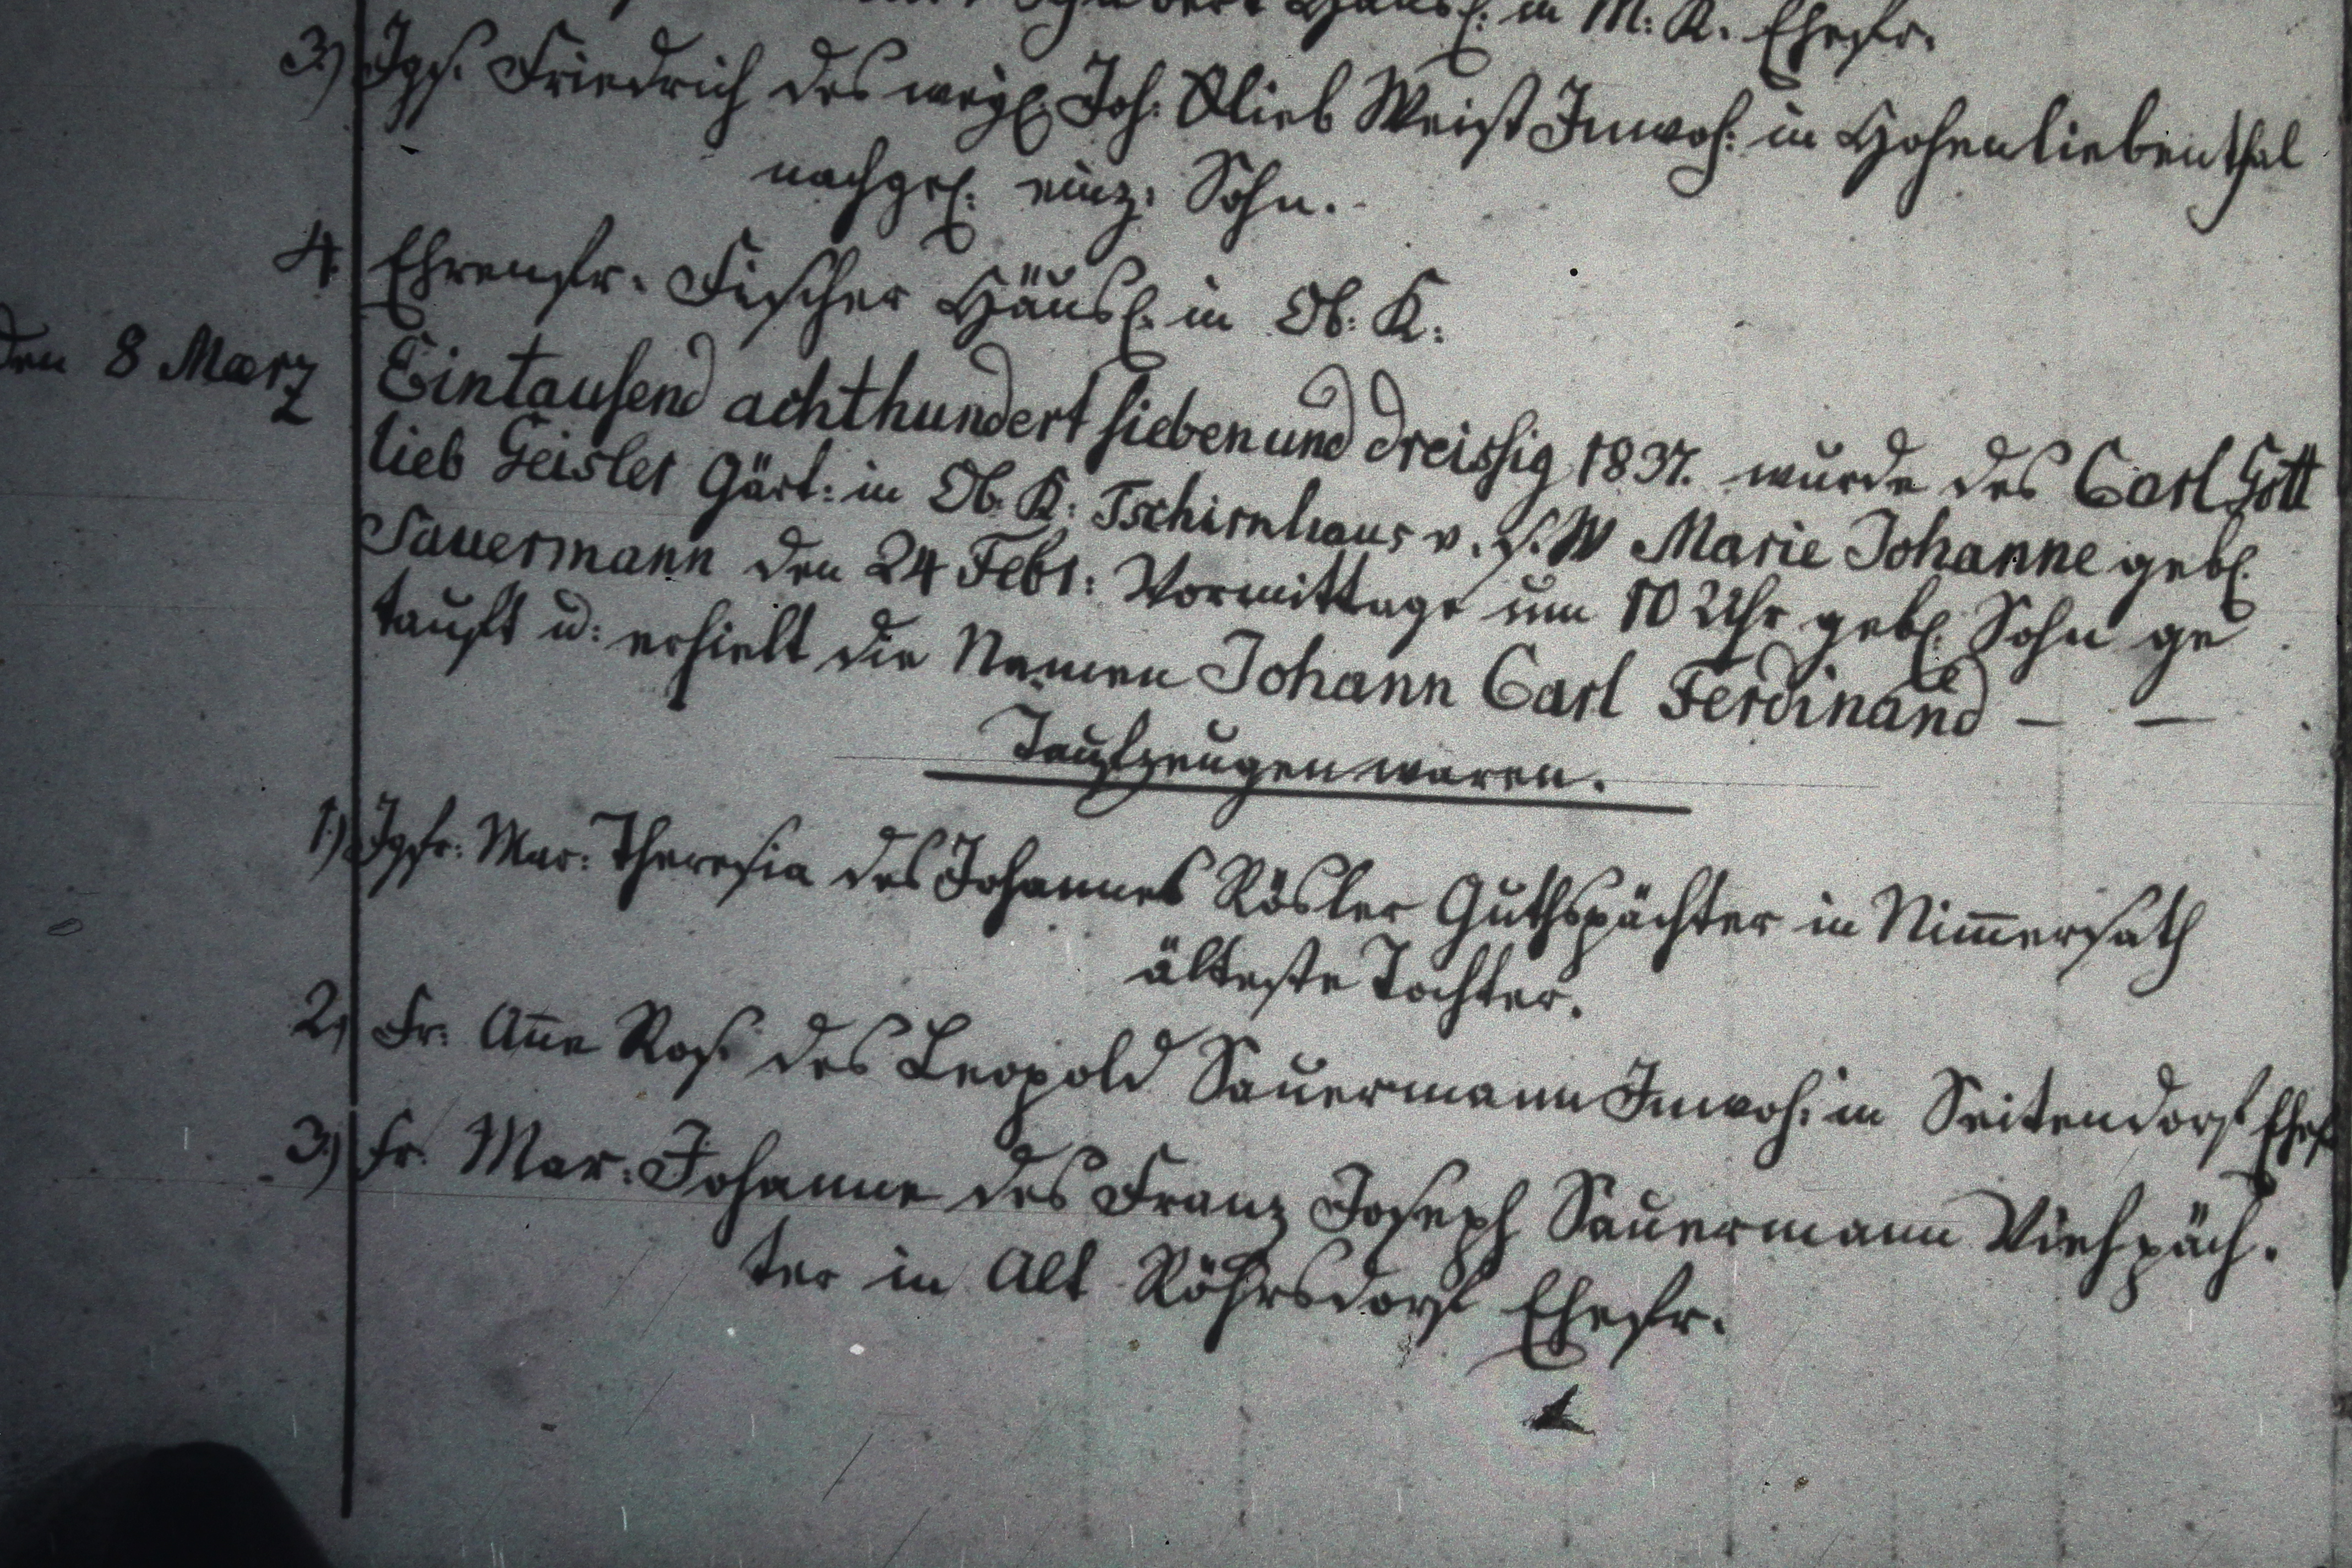 Häusl: in M: K. Ehefr.
3.) Jgs. Friedrich des weyl. Joh: Glieb Weist Inwoh: in Hohenliebenthal
nachgel: einz: Sohn.
4. Ehrenfr. Fischer Häusl. in Ob: K:
den 8 Maerz Eintausend achthundert sieben und dreissig 1837. wurde des Carl Gott
lieb Geisler Gärt: in Ob. K: Tschirnhaus v. s. W Marie Johanne gebl.
Sauermann den 24 Febr: Vormittage um 10 Uhr gebl. Sohn ge
tauft u: erhielt die Namen Johann Carl Ferdinand — —
Taufzeugen waren.
1.) Jgfr: Mar: Theresia des Johannes Rösler Guthspächter in Nim̄ersath
älteste Tochter.
2, Fr: An̄e Ros. des Leopold Sauermann Inwoh: in Seitendorf Ehef
3.) Fr. Mar: Johanne des Franz Joseph Sauermann Viehpäch.
ter in Alt Röhrsdorf Ehefr.